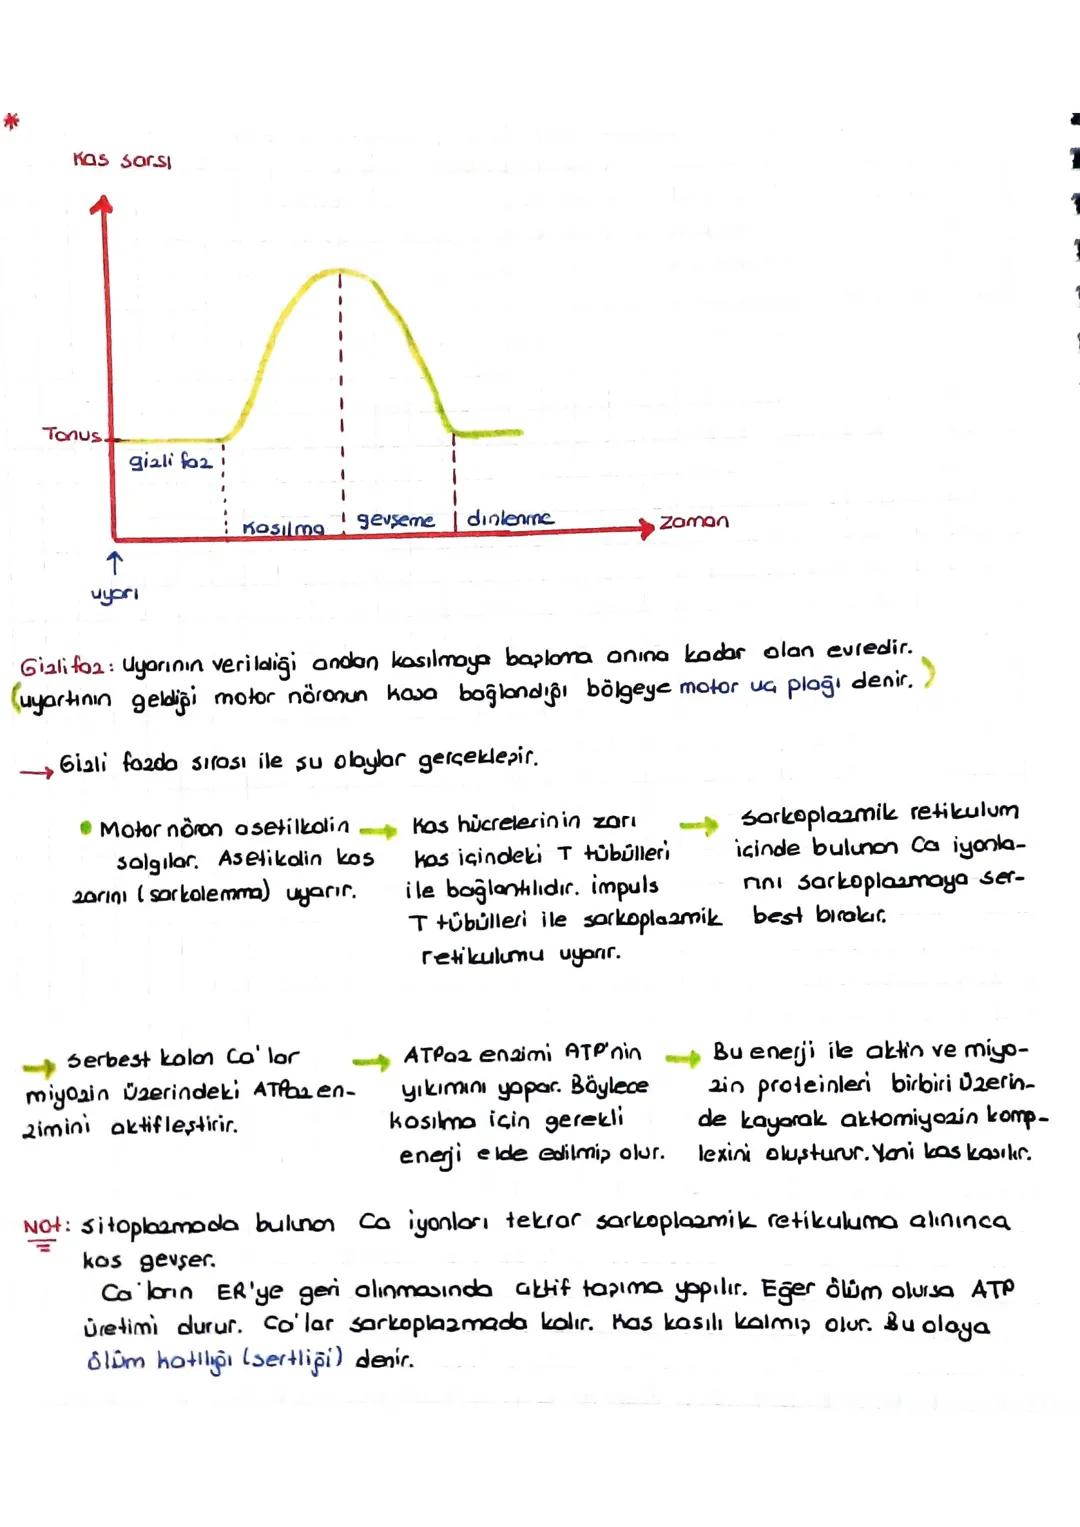 *
Kas sarsı
Tonus
gizli faz
Kasılma
gevşeme
dinlenme
Zaman
↑
uyarı
Gizli faz: Uyarının verildiği andan kasılmaya başlama anına kadar olan evredir.
(uyartının geldiği motor nöronun kasa bağlandığı bölgeye motor uç plağı denir.)
→ Gizli fazda sırası ile şu olaylar gerçekleşir.
• Motor nöron asetilkolin
salgılar. Asetikolin kas
zarını (sarkolemma) uyarır.
→ Kas hücrelerinin zarı
kas içindeki T tübülleri
ile bağlantılıdır. impuls
T tübülleri ile sarkoplazmik
retikulumu uyarır.
→ sarkoplazmik retikulum
içinde bulunan Ca iyonla-
rını sarkoplazmaya ser-
best bırakır.
→ Serbest kalan Ca'lar
miyozin üzerindeki ATPaz en-
zimini aktifleştirir.
→ ATPaz enzimi ATP'nin
yıkımını yapar. Böylece
kasılma için gerekli
enerji elde edilmiş olur.
→ Bu enerji ile aktin ve miyo-
zin proteinleri birbiri üzerin-
de kayarak aktomiyozin komp-
lexini oluşturur. Yani kas kasılır.
Not: Sitoplazmada bulunan Ca iyonları tekrar sarkoplazmik retikuluma alınınca
kas gevşer.
Ca'ların ER'ye geri alınmasında aktif taşıma yapılır. Eğer ölüm olursa ATP
üretimi durur. Ca'lar sarkoplazmada kalır. Kas kasılı kalmış olur. Bu olaya
ölüm katılığı (sertliği) denir.